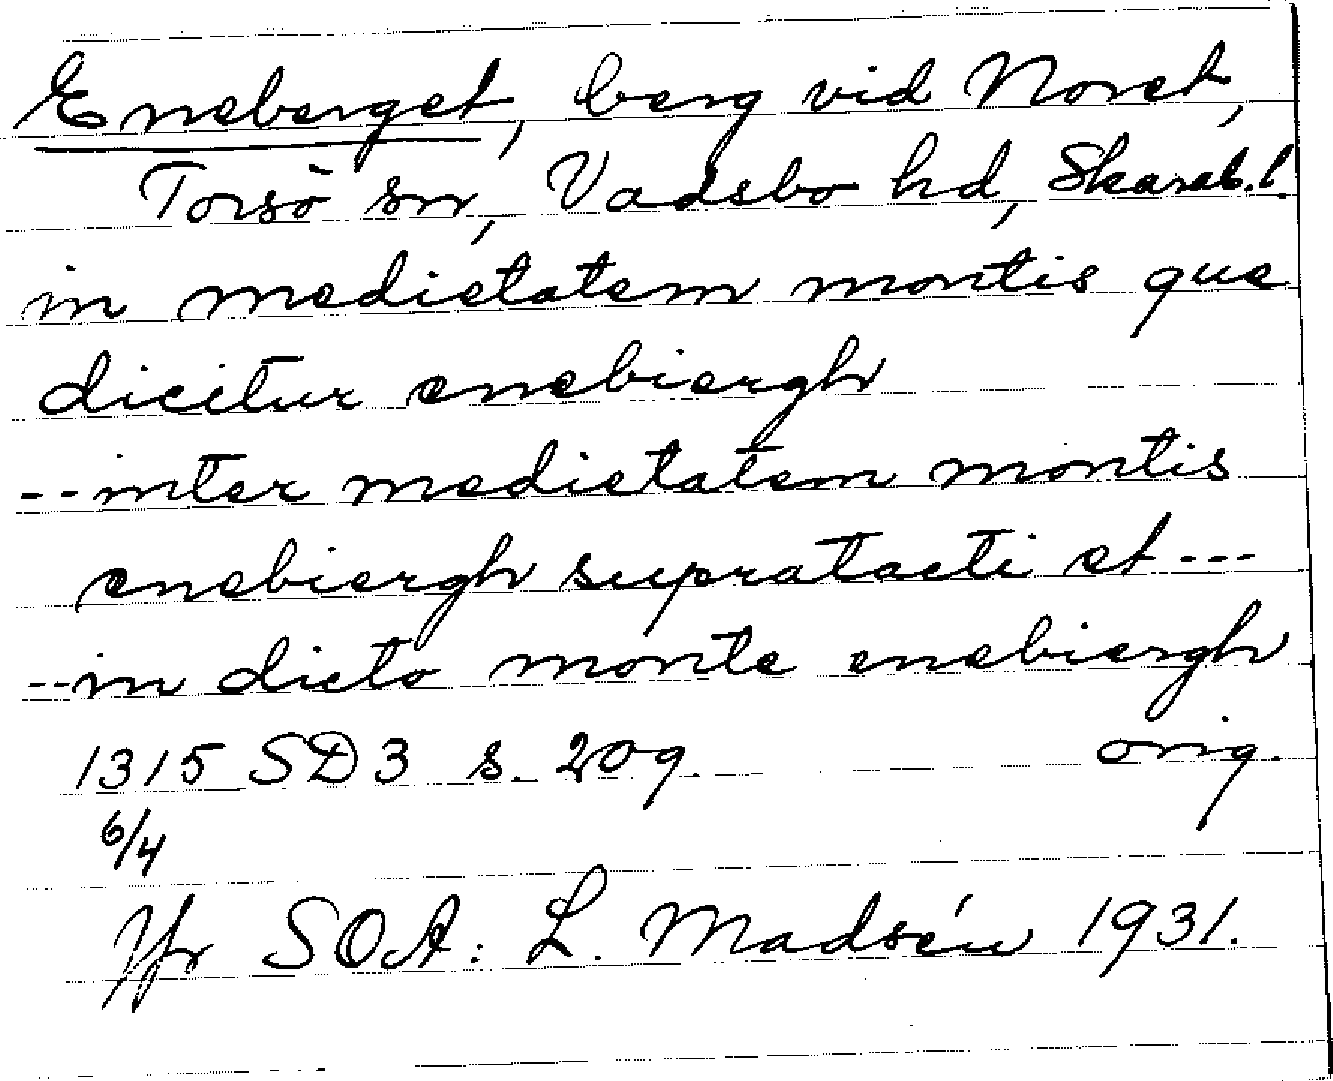 Eneberget, berg vid Noret,
Torsö sn, Vadsbo hd, Skarab. l.
in medietatem montis que
dicitur enebiergh
-- inter medietatem montis
enebiergh supratacti et ---
-- in dicto monte enebiergh
1315 SD 3 s. 209. orig.
6/4
Jfr SOA: L. Madséu 1931.